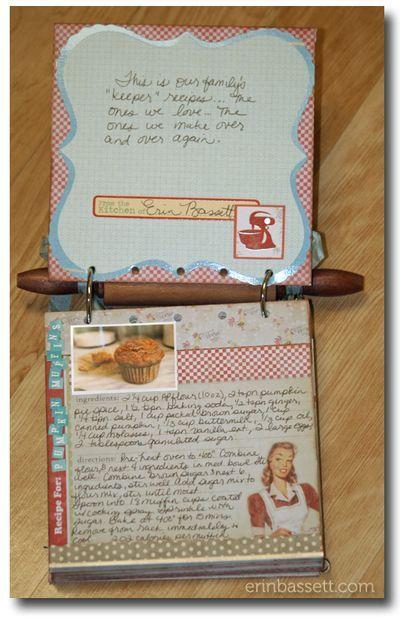 This is our family's
"keeper" recipes... The
ones we love... The
ones we make over
and over again.
From the
Kitchen of Erin Bassett
PUMPKIN MUFFINS
Recipe For:
ingredients: 2 1/4 cup AP flour (10oz), 2 tspn pumpkin
pie spice, 1 1/2 tspn baking soda, 1/2 tspn ginger,
1/4 tspn salt, 1 cup packed brown sugar, 1 cup
canned pumpkin, 1/3 cup buttermilk, 1/3 cup oil,
1/4 cup molasses, 1 tspn vanilla ext, 2 large eggs
2 tablespoons granulated sugar.
directions: Pre-heat oven to 400° Combine
flour & next 4 ingredients in med bowl. Stir
well. Combine brown sugar & next 6
ingredients, stir well. Add sugar mix to
flour mix, stir until moist.
Spoon into 18 muffin cups coated
w/cooking spray. Sprinkle with
sugar. Bake at 400° for 15 mins.
Remove from pans immediately &
cool. 202 calories per muffin
erinbassett.com